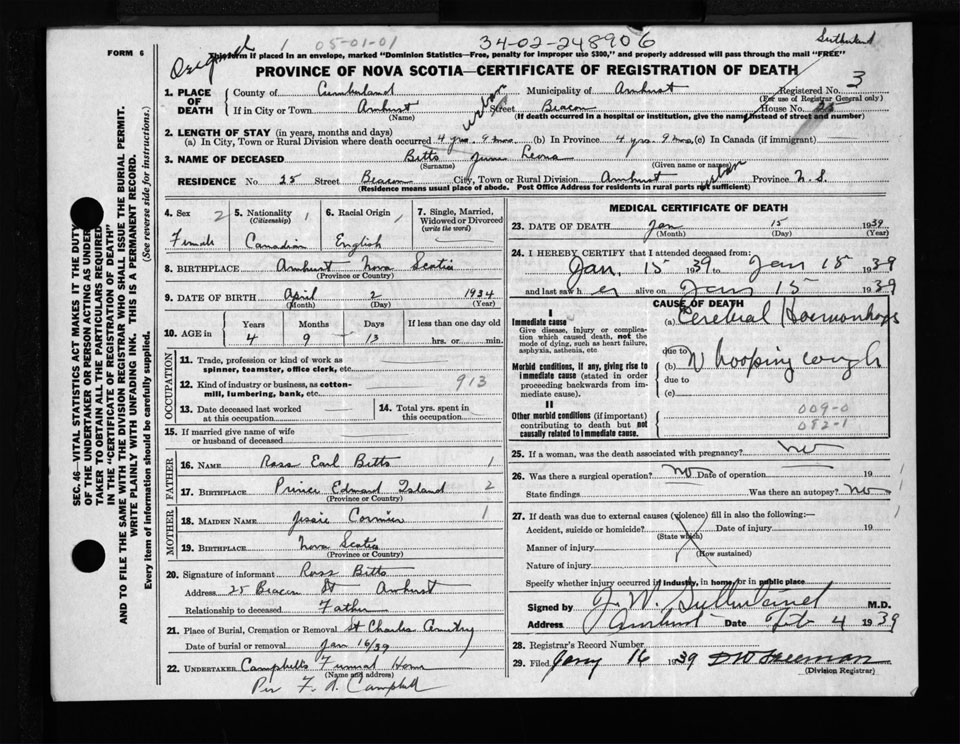 Original 1 05-01-01 34-02-248906 Sutherland
FORM 6 This form if placed in an envelope, marked "Dominion Statistics—Free, penalty for improper use $300," and properly addressed will pass through the mail "FREE"
PROVINCE OF NOVA SCOTIA—CERTIFICATE OF REGISTRATION OF DEATH
1. PLACE OF DEATH County of Cumberland Municipality of Amherst Registered No. 3
(For use of Registrar General only)
If in City or Town Amherst urban Street Beacon House No. 25
(Name) (If death occurred in a hospital or institution, give the name instead of street and number)
2. LENGTH OF STAY (in years, months and days)
(a) In City, Town or Rural Division where death occurred 4 yrs. 9 mos. (b) In Province 4 yrs. 9 mos. (c) In Canada (if immigrant)
3. NAME OF DECEASED Bitts June Leona
(Surname) (Given name or names)
RESIDENCE No 25 Street Beacon City, Town or Rural Division Amherst urban Province N. S.
(Residence means usual place of abode. Post Office Address for residents in rural parts not sufficient)
4. Sex 2 Female
5. Nationality (Citizenship) 1 Canadian
6. Racial Origin 1 English
7. Single, Married, Widowed or Divorced (write the word)
8. BIRTHPLACE Amherst Nova Scotia
(Province or Country)
9. DATE OF BIRTH April 2 1934
(Month) (Day) (Year)
10. AGE in Years Months Days If less than one day old
4 9 13 hrs. or min.
OCCUPATION
11. Trade, profession or kind of work as spinner, teamster, office clerk, etc.
12. Kind of industry or business, as cotton-mill, lumbering, bank, etc. 913
13. Date deceased last worked at this occupation
14. Total yrs. spent in this occupation
15. If married give name of wife or husband of deceased
FATHER
16. NAME Ross Earl Bitts 1
17. BIRTHPLACE Prince Edward Island 2
(Province or Country)
MOTHER
18. MAIDEN NAME Jessie Cormier 1
19. BIRTHPLACE Nova Scotia
(Province or Country)
20. Signature of informant Ross Bitts
Address 25 Beacon St Amherst
Relationship to deceased Father
21. Place of Burial, Cremation or Removal St Charles Cemetry
Date of burial or removal Jan 16/39
22. UNDERTAKER Campbells Funeral Home
(Name and address)
Per F. A. Campbell
MEDICAL CERTIFICATE OF DEATH
23. DATE OF DEATH Jan 15 1939
(Month) (Day) (Year)
24. I HEREBY CERTIFY that I attended deceased from:
Jan. 15 1939 to Jan 15 1939
and last saw h er alive on Jan 15 1939
CAUSE OF DEATH
I
Immediate cause (a) Cerebral Haemorrhage
Give disease, injury or complication which caused death, not the mode of dying, such as heart failure, asphyxia, asthenia, etc
due to
Morbid conditions, if any, giving rise to immediate cause (stated in order proceeding backwards from immediate cause).
(b) Whooping cough
due to
(c)
II
Other morbid conditions (if important) contributing to death but not causally related to immediate cause.
009-0
082-1
25. If a woman, was the death associated with pregnancy? no
26. Was there a surgical operation? No Date of operation 19 1
State findings Was there an autopsy? no
27. If death was due to external causes (violence) fill in also the following:—
Accident, suicide or homicide? Date of injury 19 1
(State which)
Manner of injury
(How sustained)
Nature of injury
Specify whether injury occurred in industry, in home, or in public place
Signed by J. W. Sutherland M.D.
Address Amherst Date Feb 4 1939
28. Registrar's Record Number
29. Filed Jany 16 1939 D W Freeman
(Division Registrar)
SEC. 46—VITAL STATISTICS ACT MAKES IT THE DUTY
OF THE UNDERTAKER OR PERSON ACTING AS UNDERTAKER TO OBTAIN ALL THE PARTICULARS REQUIRED
IN THE "CERTIFICATE OF REGISTRATION OF DEATH"
AND TO FILE THE SAME WITH THE DIVISION REGISTRAR WHO SHALL ISSUE THE BURIAL PERMIT.
WRITE PLAINLY WITH UNFADING INK. THIS IS A PERMANENT RECORD.
Every item of information should be carefully supplied. (See reverse side for instructions.)